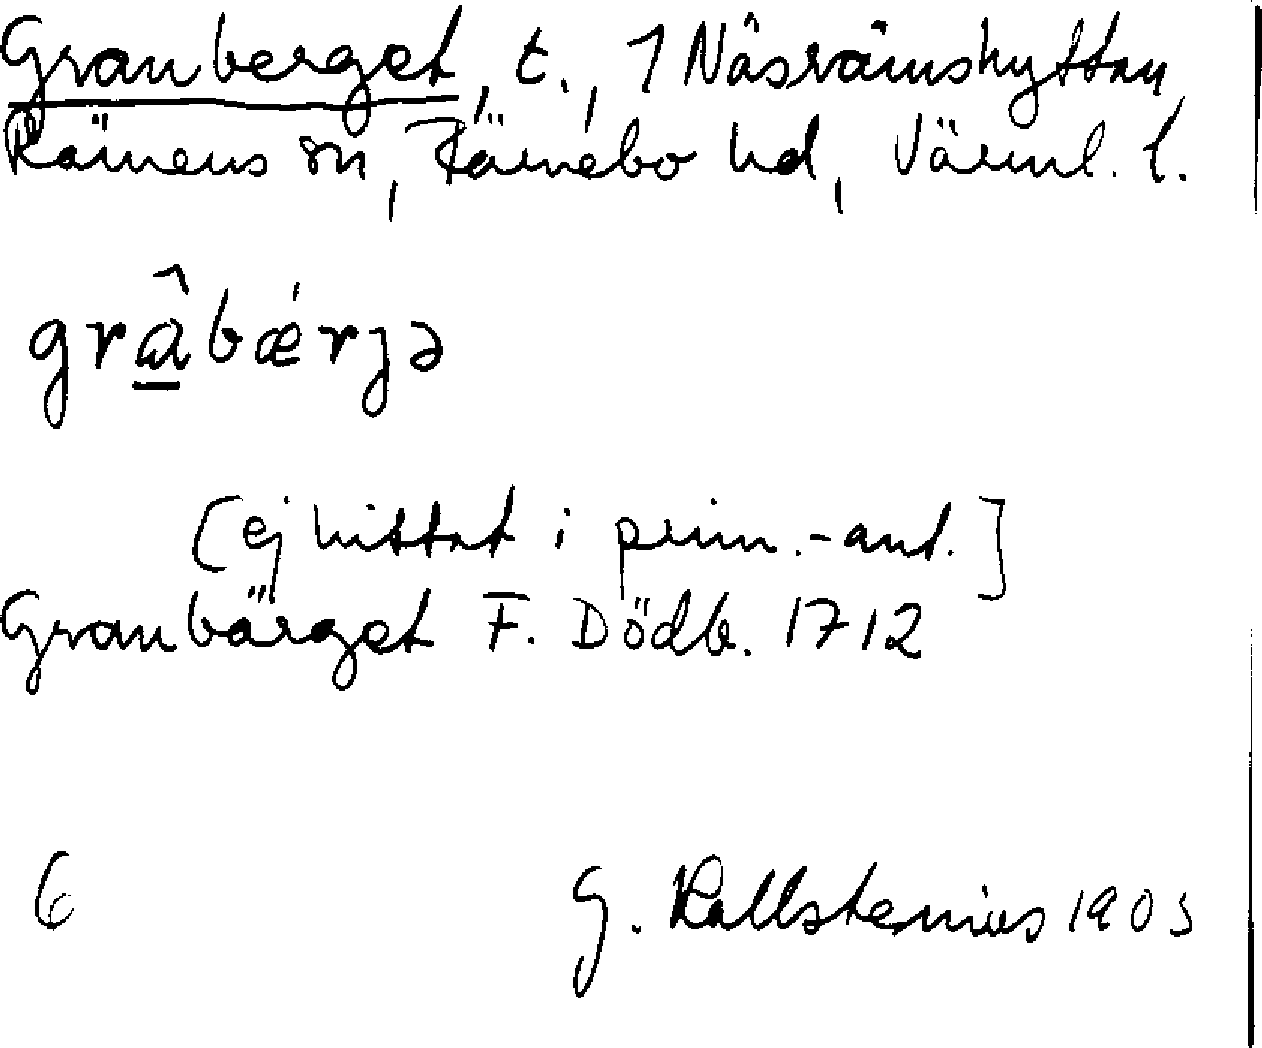 Granberget, t., 1 Näsrämshyttan,
Rämens sn, Färnebo hd, Värml. l.
grâ̱bǽrjə
[ej hittat i prim.-ant.]
Granbärget F. Dödb. 1712
6
G. Kallstenius 1903